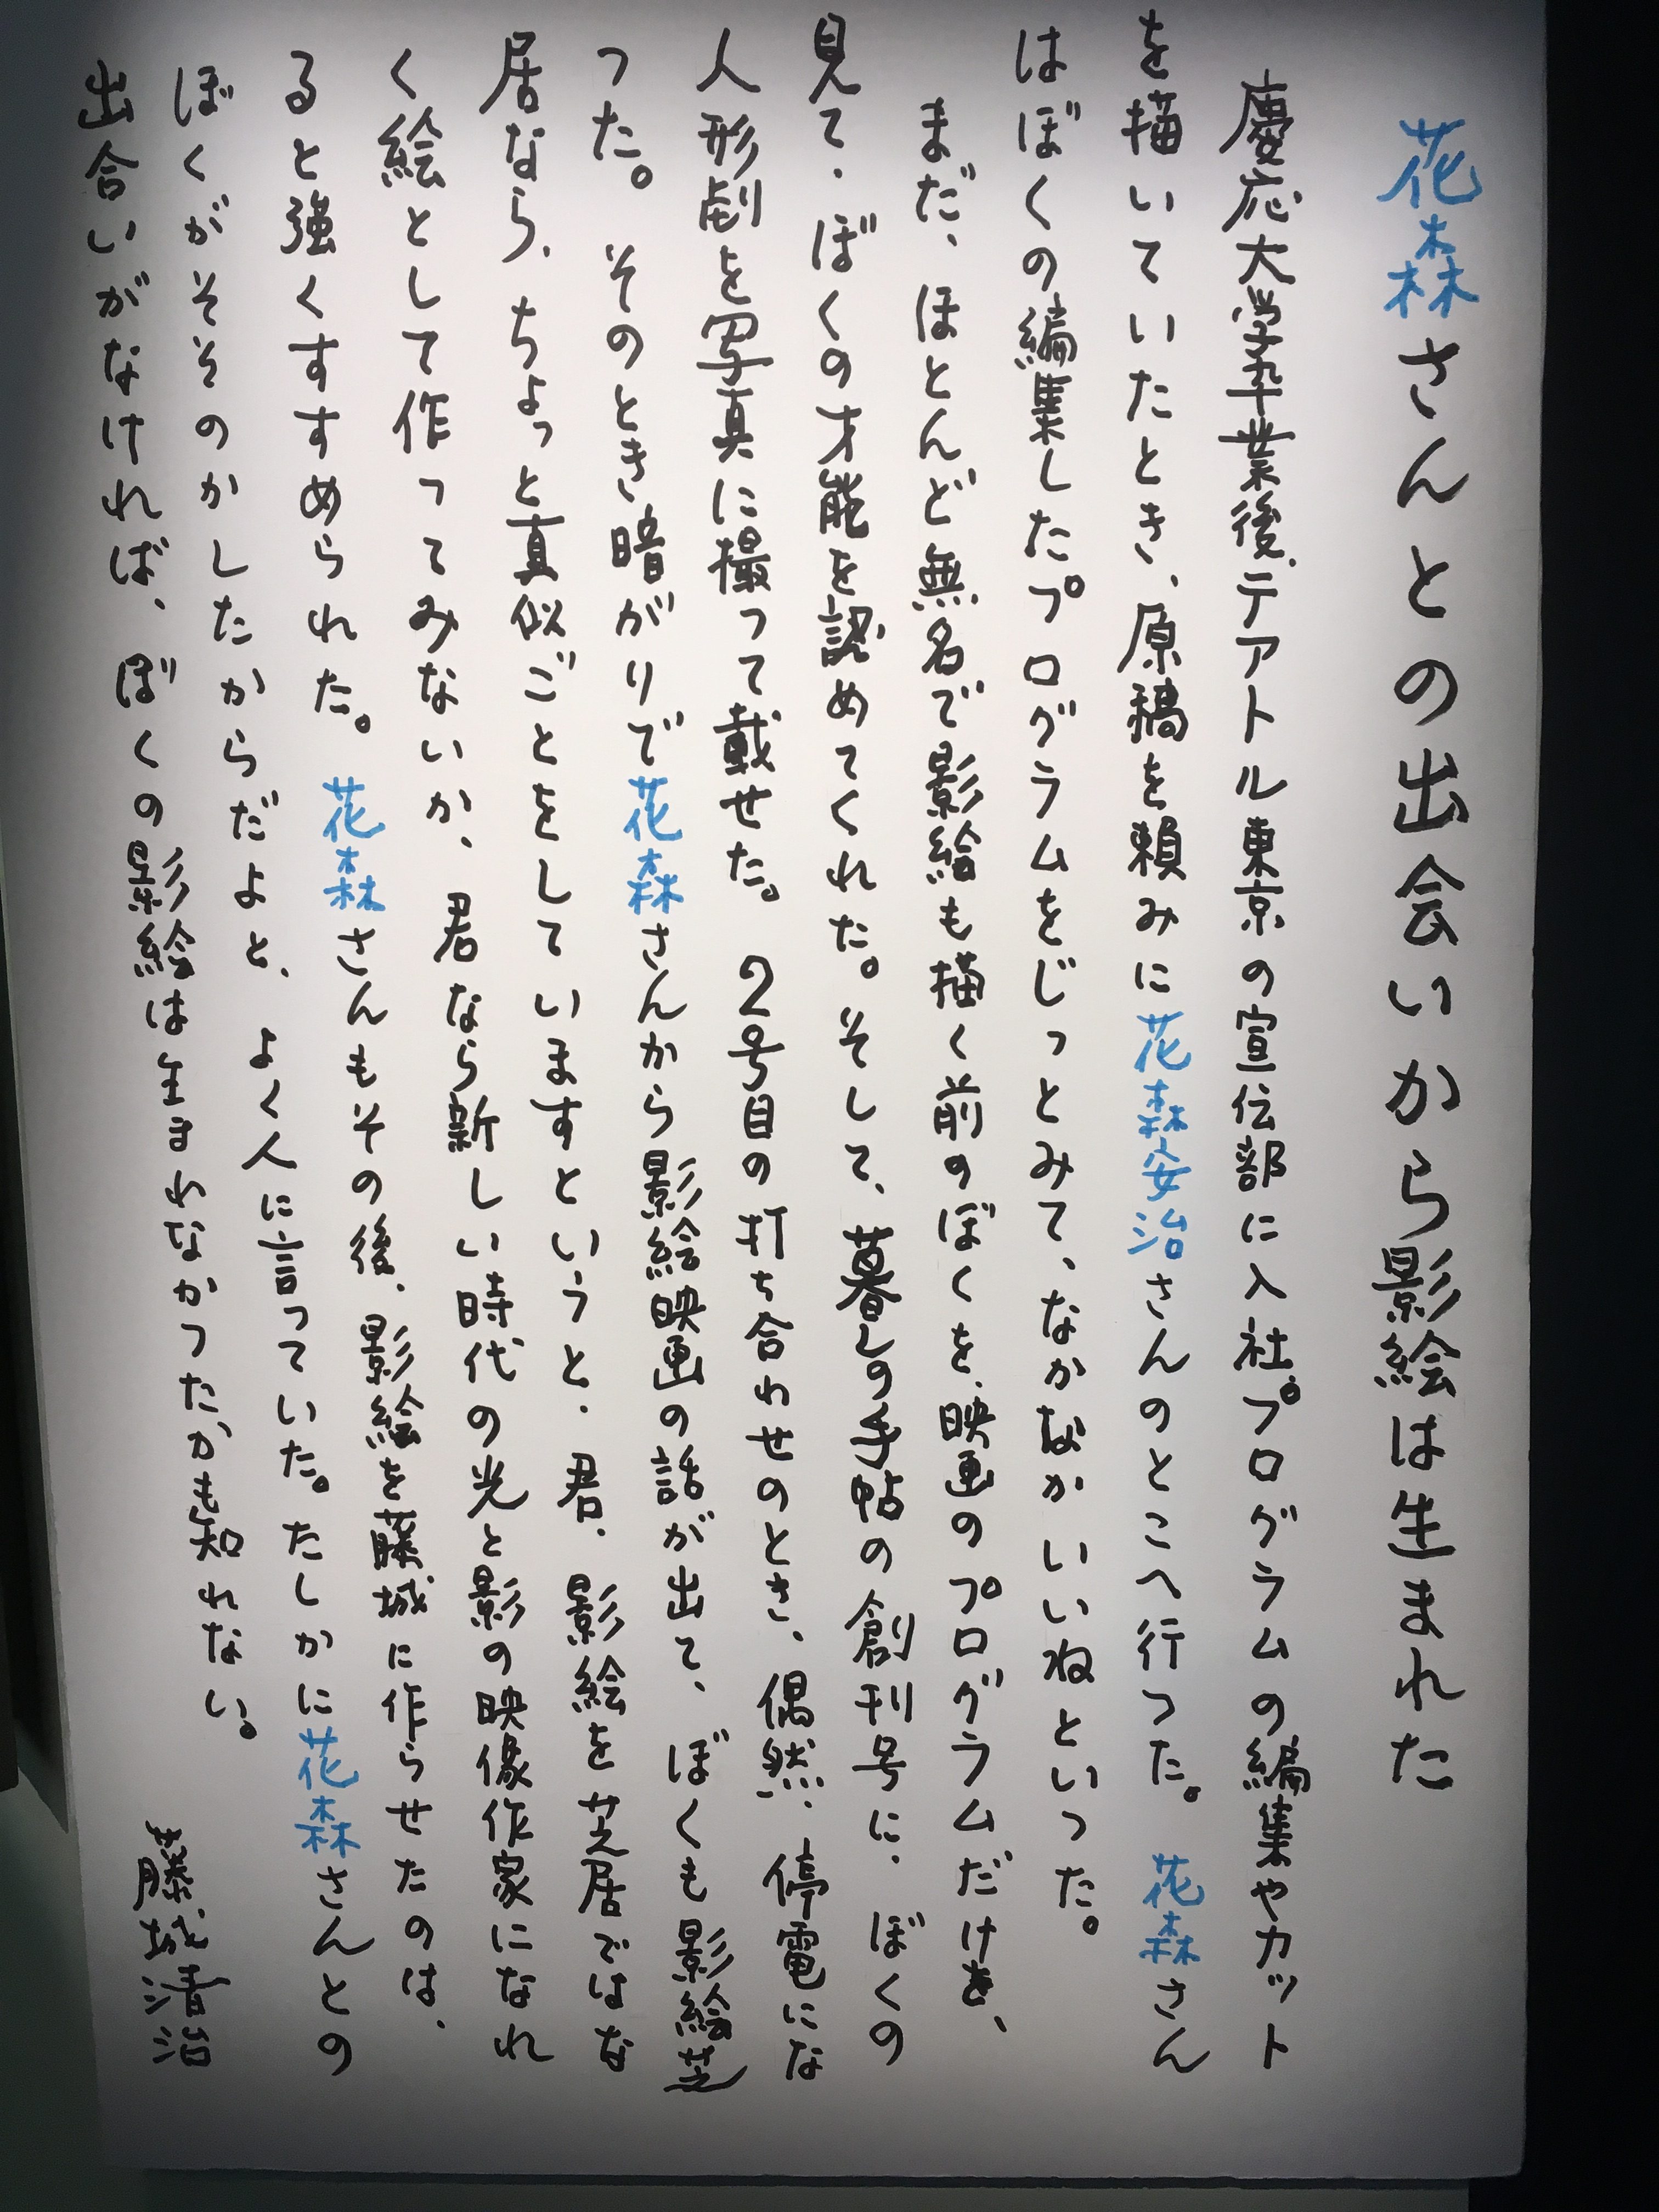 花森さんとの出会いから影絵は生まれた
慶応大学卒業後、テアトル東京の宣伝部に入社。プログラムの編集やカット
を描いていたとき、原稿を頼みに花森安治さんのとこへ行った。花森さん
はぼくの編集したプログラムをじっとみて、なかなかいいねといった。
まだ、ほとんど無名で影絵も描く前のぼくを、映画のプログラムだけを、
見て、ぼくの才能を認めてくれた。そして、暮しの手帖の創刊号に、ぼくの
人形劇を写真に撮って載せた。2号目の打ち合わせのとき、偶然、停電にな
った。そのとき暗がりで花森さんから影絵映画の話が出て、ぼくも影絵芝
居なら、ちょっと真似ごとをしていますというと、君、影絵を芝居ではな
く絵として作ってみないか、君なら新しい時代の光と影の映像作家になれ
ると強くすすめられた。花森さんもその後、影絵を藤城に作らせたのは、
ぼくがそそのかしたからだよと、よく人に言っていた。たしかに花森さんとの
出合いがなければ、ぼくの影絵は生まれなかったかも知れない。
藤城清治